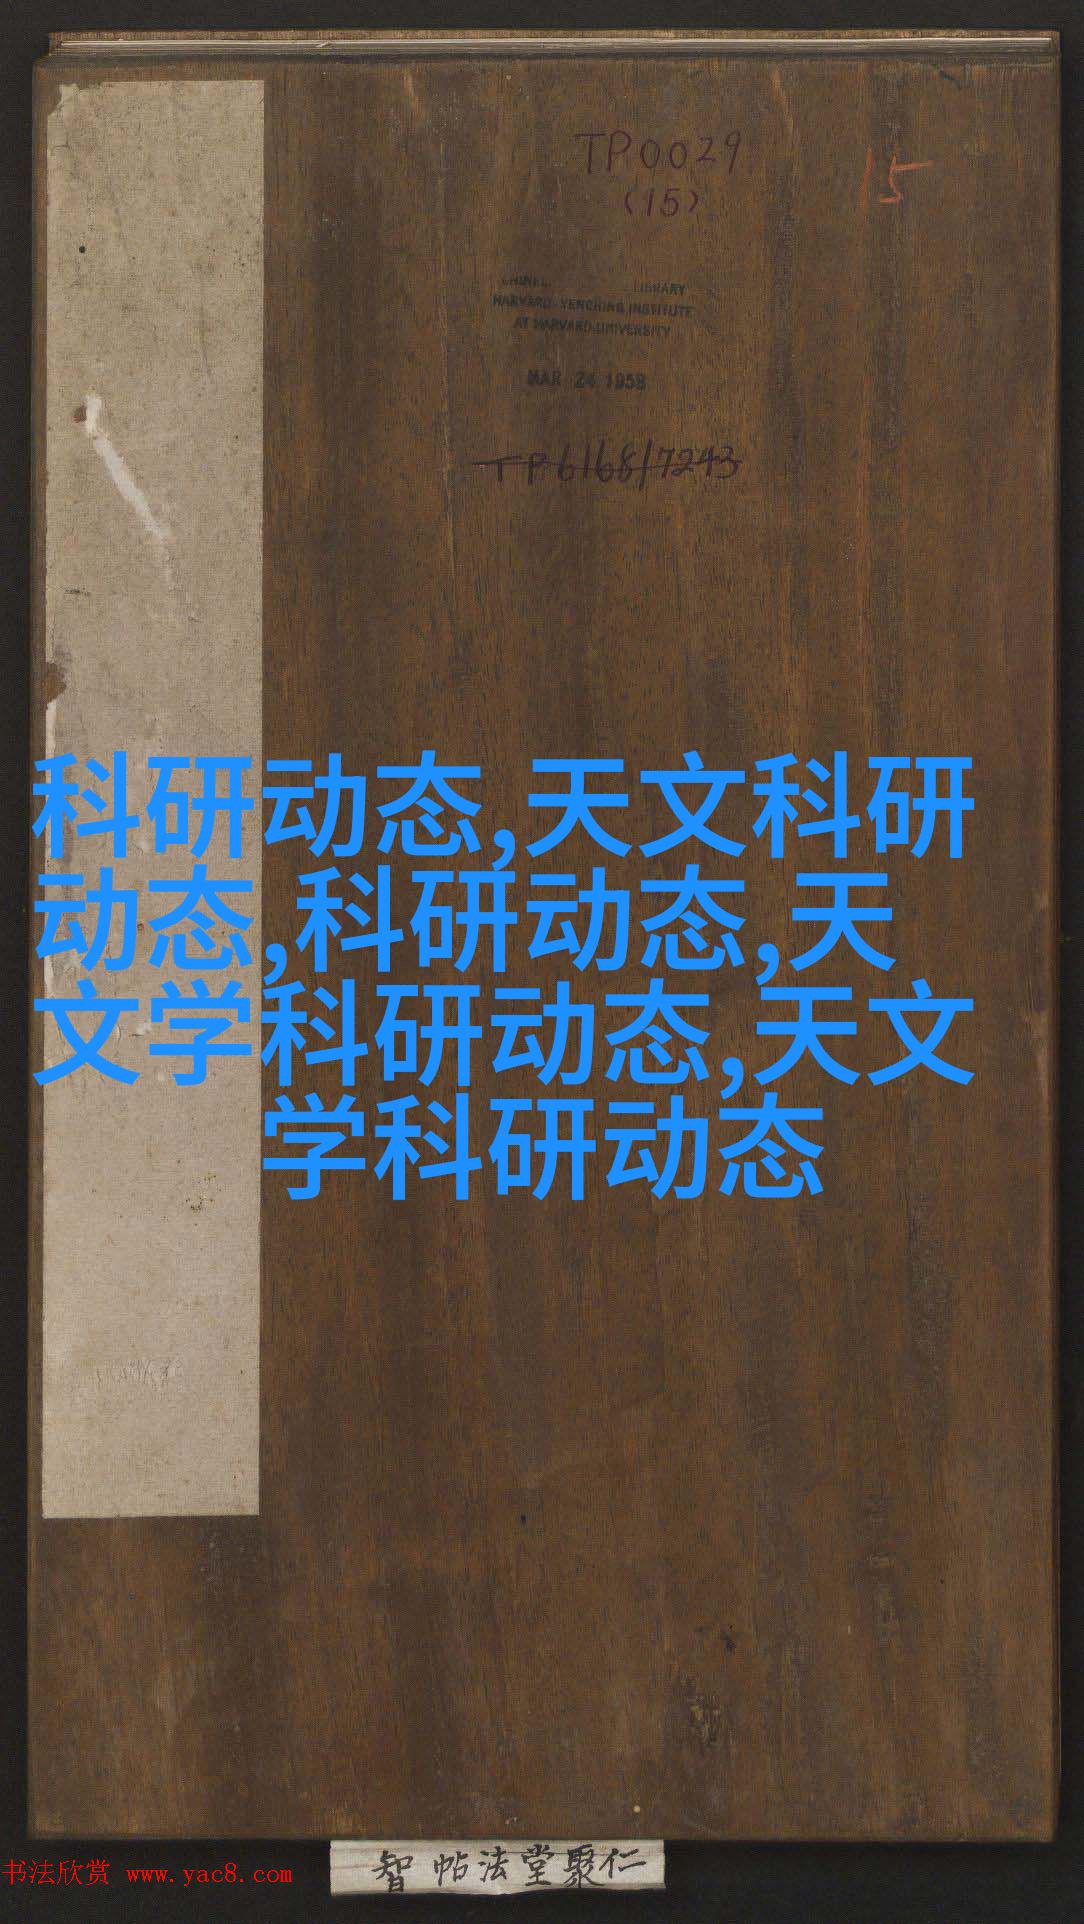 TP0029
(15)
15
HARVARD-YENCHING INSTITUTE
AT HARVARD UNIVERSITY
MAR 24 1958
TP6168/7243
科研动态,天文科研
动态,科研动态,天
文学科研动态,天文
学科研动态
智帖法堂聚仁
书法欣赏 www.yac8.com